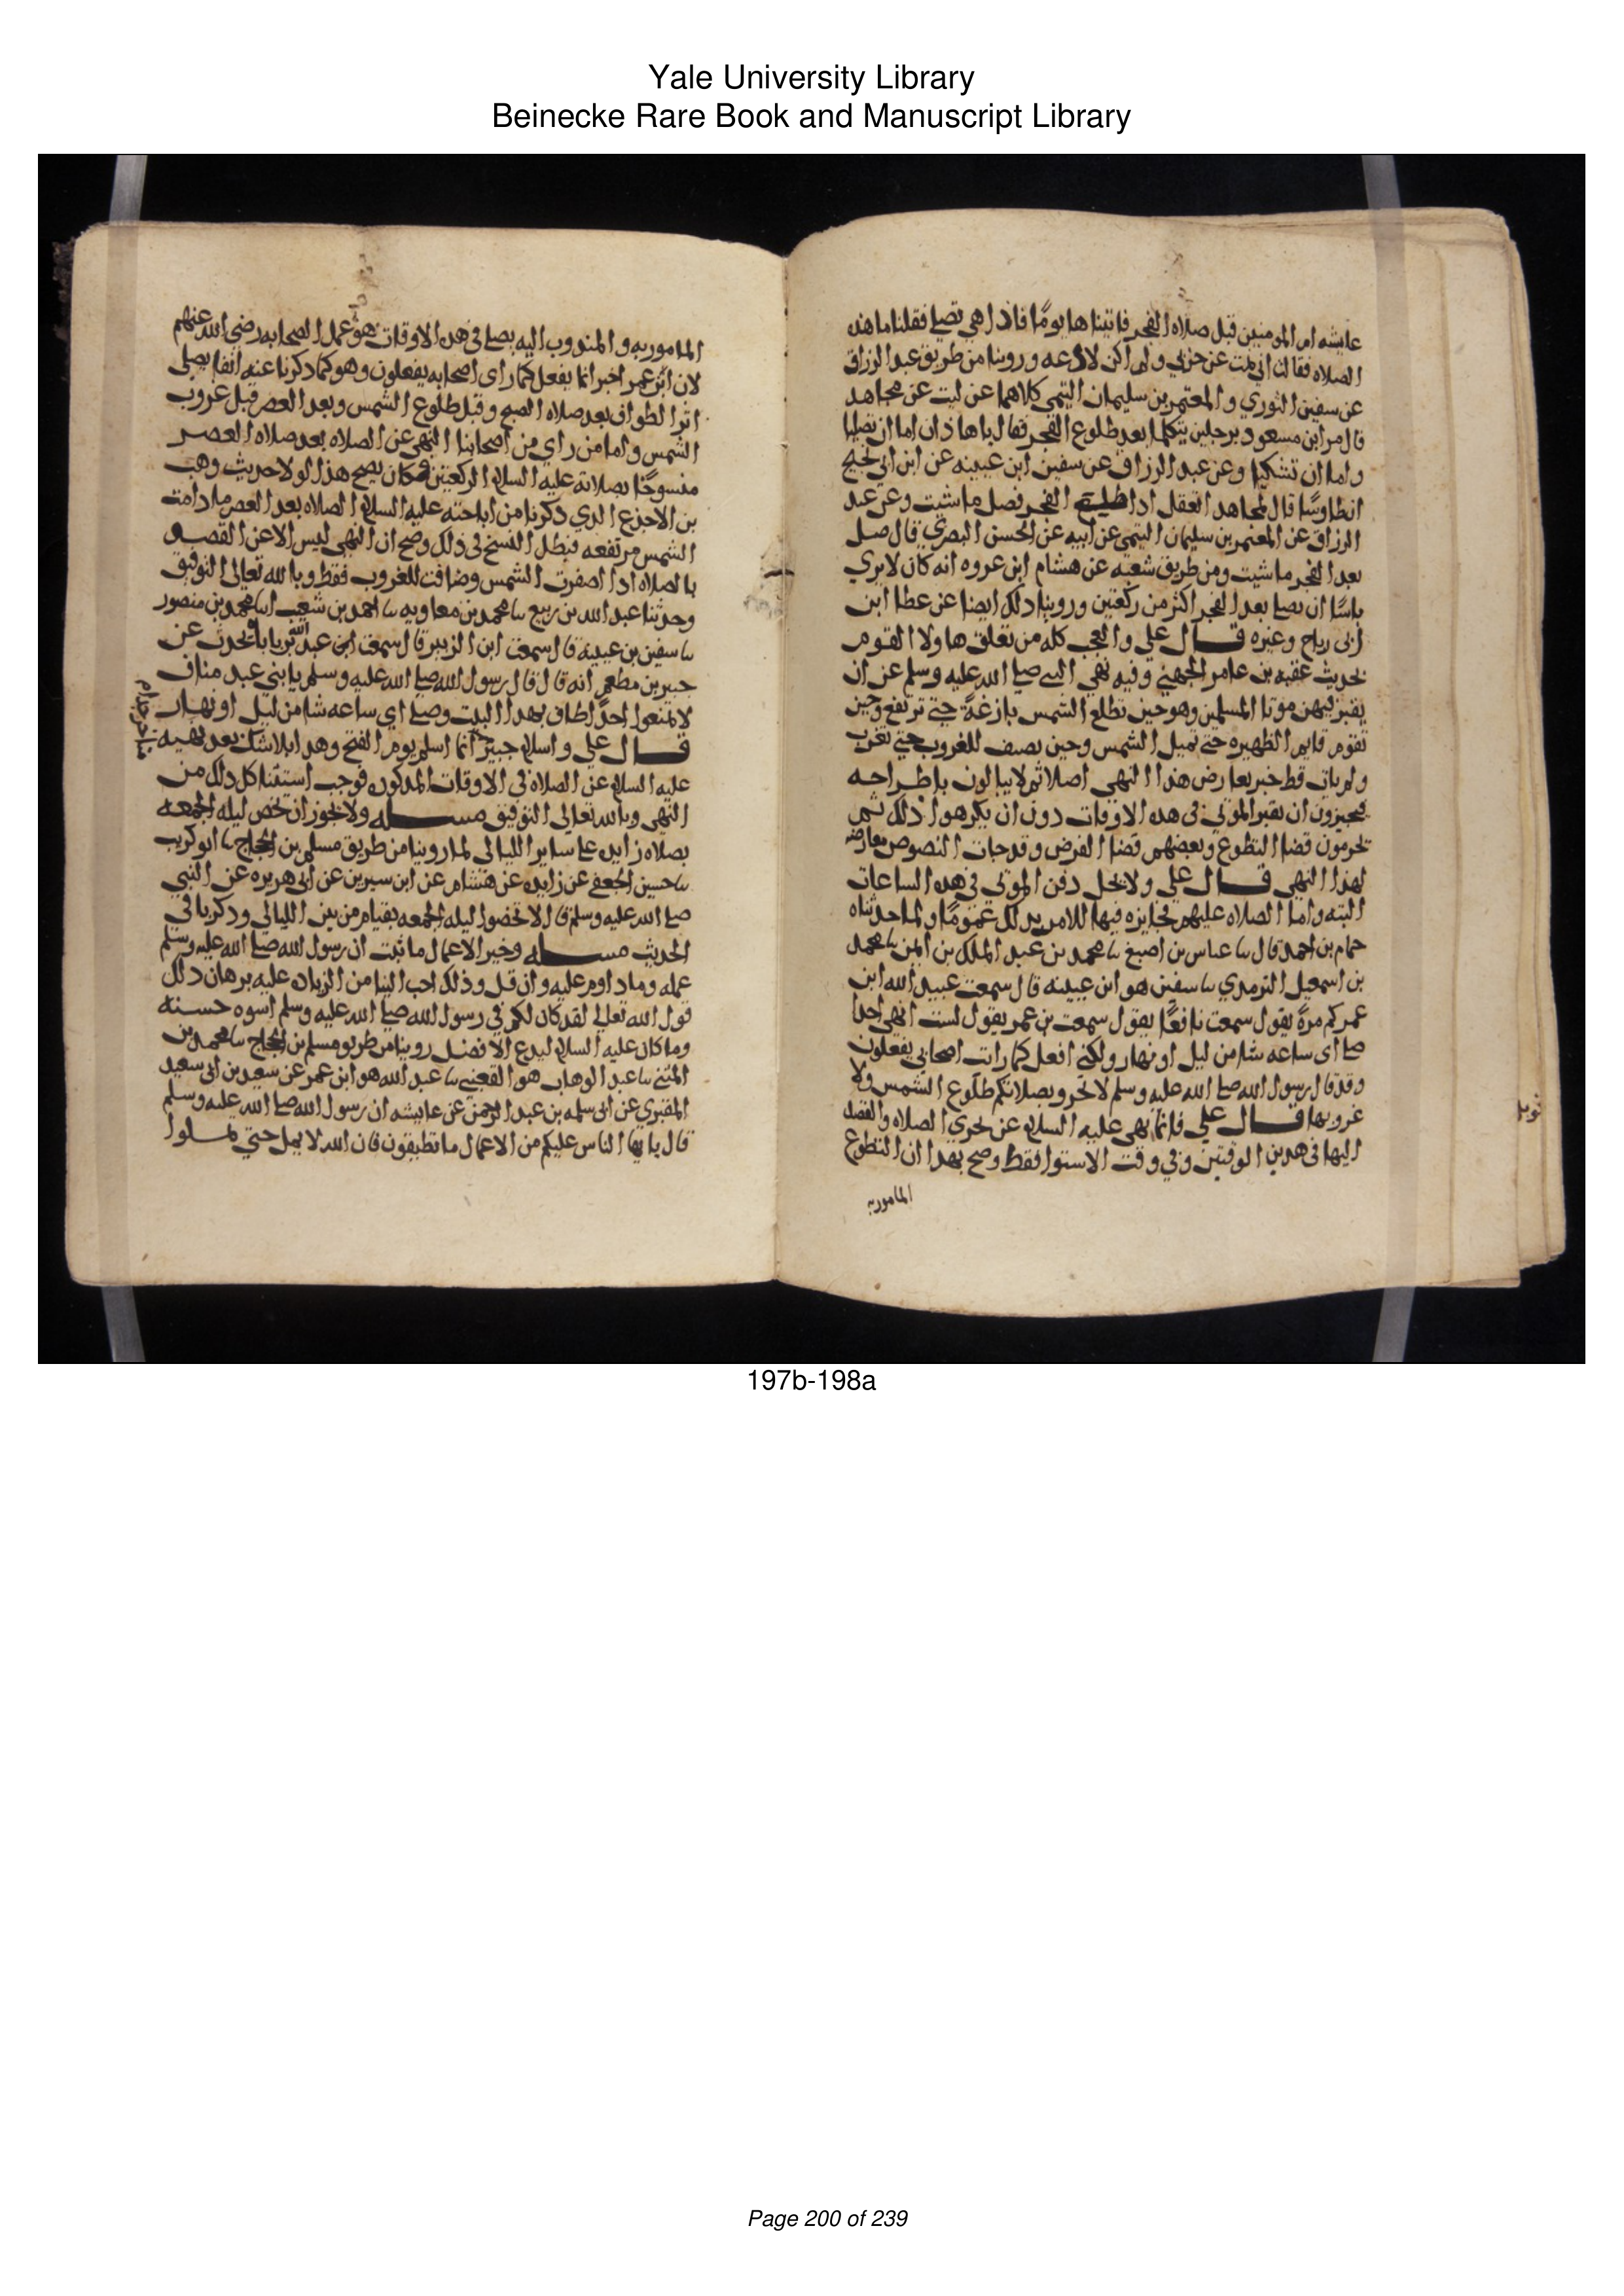 Yale University Library
Beinecke Rare Book and Manuscript Library
عايشه ام المومنين قبل صلاه الفجر فاتيناها يومًا فاذا هي تصلي فقلنا ما هذه
الصلاه فقالت اني نمت عن حزبي ولم اكن لادعه وروينا من طريق عبد الرزاق
عن سفين الثوري والمعتمر بن سليمان التيمي كلاهما عن ليث عن مجاهد
قال مر ابن مسعود برجلين يتكلما بعد طلوع الفجر فقال يا هاذان اما ان تصليا
واما ان تسكتا وعن عبد الرزاق عن سفين ابن عيينه عن ابن ابي نجيح
ان طاوسًا قال لمجاهد اتعقل اذا طلع الفجر فصل ما شيت وعن عبد
الرزاق عن المعتمر بن سليمان التيمي عن ابيه عن الحسن البصري قال صل
بعد الفجر ما شيت ومن طريق شعبه عن هشام ابن عروه انه كان لا يري
باسًا ان يصلي بعد الفجر اكثر من ركعتين وروينا ذلك ايضا عن عطا ابن
ابي رباح وغيره قال علي والعجب كله من تعلق هاولا القوم
بحديث عقبه بن عامر الجهني وفيه نهي النبي صلي الله عليه وسلم عن ان
يقبر فيهن موتا المسلمين وهو حين تطلع الشمس بازغةً حتي ترتفع وحين
تقوم قايم الظهيره حتي تميل الشمس وحين تضيف للغروب حتي تغرب
ولم يات قط خبر يعارض هذا النهي اصلا ثم لا يبالون باطراحه
فيجيزون ان تقبر الموتي في هذه الاوقات دون ان يكرهوا ذلك ثم
يحرمون قضا التطوع وبعضهم قضا الفرض وقد جات النصوص معارضه
لهذا النهي قال علي ولا يحل دفن الموتي في هذه الساعات
البته واما الصلاه عليهم فجايزه فيها للامر بذلك عمومًا ولما حدثناه
حمام بن احمد قال نا عباس بن اصبغ نا محمد بن عبد الملك بن ايمن نا محمد
بن اسمعيل الترمذي نا سفين هو ابن عيينه قال سمعت عبيد الله ابن
عمر كم مرةً يقول سمعت نافعًا يقول سمعت بن عمر يقول لست انهي احدا
صلي اي ساعه شا من ليل او نهار ولكني افعل كما رايت اصحابي يفعلون
وقد قال رسول الله صلي الله عليه وسلم لا تحروا بصلاتكم طلوع الشمس ولا
غروبها قال علي فانما نهي عليه السلام عن تحري الصلاه والقصد
اليها في هذين الوقتين وفي وقت الاستوا فقط وصح بهذا ان التطوع
المامور به
المامور به والمندوب اليه يصلي في هذه الاوقات هو عمل الصحابه رضي الله عنهم
لان ابن عمر اخبر انما يفعل كما راي اصحابه يفعلون وهو كما ذكرنا عنه انفا يصلي
اثر الطواف بعد صلاه الصبح وقبل طلوع الشمس وبعد العصر قبل غروب
الشمس واما من راي من اصحابنا النهي عن الصلاه بعد صلاه العصر
منسوخًا بصلاته عليه السلام الركعتين فكان يصح هذا لولا حديث وهب
بن الاجدع الذي ذكرنا من اباحته عليه السلام الصلاه بعد العصر ما دامت
الشمس مرتفعه فبطل النسخ في ذلك وصح ان النهي ليس الا عن القصد
بالصلاه اذا اصفرت الشمس وضافت للغروب فقط وبالله تعالي التوفيق
وحدثنا عبد الله بن ربيع نا محمد بن معاويه نا احمد بن شعيب انا محمد بن منصور
نا سفين بن عيينه قال سمعت ابن الزبير قال سمعت ابن عبد الله بن باباه يحدث عن
جبير بن مطعم انه قال قال رسول الله صلي الله عليه وسلم يا بني عبد مناف
لا تمنعوا احدًا طاف بهذا البيت وصلي اي ساعه شا من ليل او نهار
قال علي واسلام جبير انما اسلم يوم الفتح وهذا بلا شك بعد نهيه
عليه السلام عن الصلاه في الاوقات المذكوره فوجب استثنا كل ذلك من
النهي وبالله تعالي التوفيق مسله ولا يجوز ان تخص ليله الجمعه
بصلاه زايده علي ساير الليالي لما روينا من طريق مسلم بن الحجاج نا ابو كريب
نا حسين الجعفي عن زايده عن هشام عن ابن سيرين عن ابي هريره عن النبي
صلي الله عليه وسلم قال لا تخصوا ليله الجمعه بقيام من بين الليالي وذكر باقي
الحديث مسله وخير الاعمال ما ثبت ان رسول الله صلي الله عليه وسلم
عمله وما داوم عليه وان قل وذلك احب الينا من الزياده عليه برهان ذلك
قول الله تعالي لقد كان لكم في رسول الله صلي الله عليه وسلم اسوه حسنه
وما كان عليه السلام ليدع الافضل روينا من طريق مسلم بن الحجاج نا محمد بن
المثني نا عبد الوهاب هو الثقفي نا عبد الله هو ابن عمر عن سعيد بن ابي سعيد
المقبري عن ابي سلمه بن عبد الرحمن عن عايشه ان رسول الله صلي الله عليه وسلم
قال يا ايها الناس عليكم من الاعمال ما تطيقون فان الله لا يمل حتي تملوا
197b-198a
Page 200 of 239